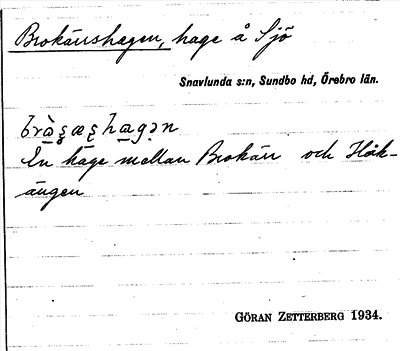 Brokärrshagen, hage å Sjö
Snavlunda s:n, Sundbo hd, Örebro län.
En hage mellan Brokärr och Hök-
ängen
GÖRAN ZETTERBERG 1934.